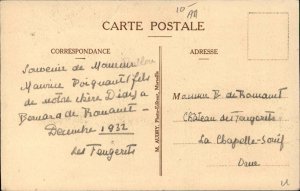 10/AA
CARTE POSTALE
CORRESPONDANCE
ADRESSE
Souvenir de Monsieur
Maurice Poignant fils
de notre chère Diary a
Bernard de Romanet
Decembre 1932
les Fougerets
M. AUBRY, Photo-Editeur, Marseille
Monsieur B. de Romanet
Château des Fougerets
La Chapelle-Souëf
Orne